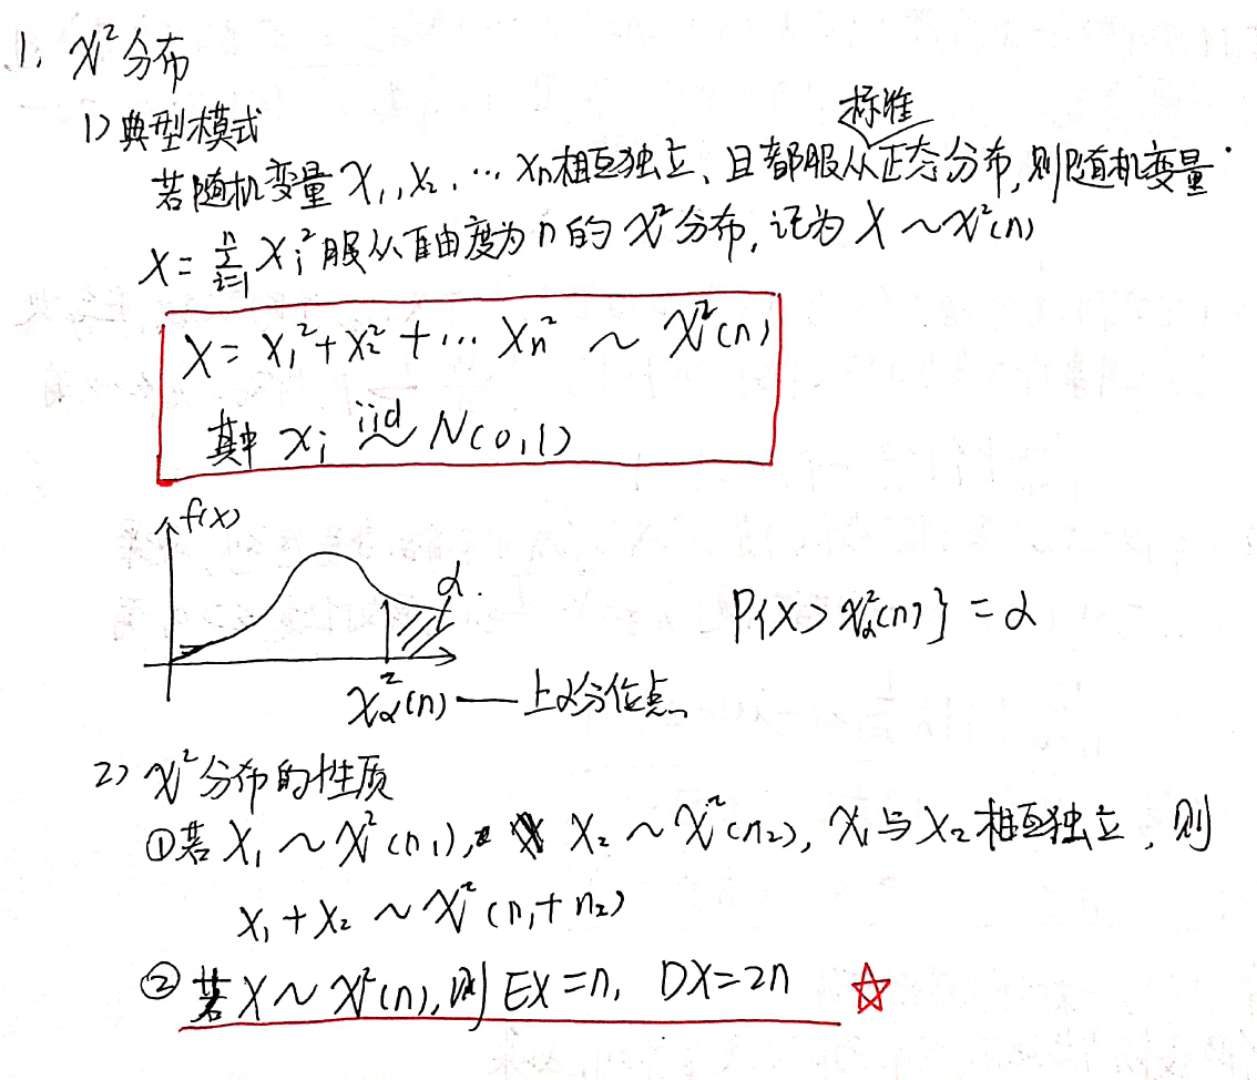 1. χ²分布
1) 典型模式
标准
若随机变量 X₁, X₂, … Xn相互独立、且都服从正态分布, 则随机变量
X = Σᵢ₌₁ⁿ Xᵢ² 服从自由度为 n 的 χ² 分布, 记为 X ~ χ²(n)
X = X₁² + X₂² + … Xn² ~ χ²(n)
其中 Xᵢ iid~ N(0,1)
f(x)
α
P{X > χ²α(n)} = α
χ²α(n) — 上α分位点
2) χ²分布的性质
①若 X₁ ~ χ²(n₁), X₂ ~ χ²(n₂), X₁与X₂相互独立, 则
X₁ + X₂ ~ χ²(n₁+n₂)
②若 X ~ χ²(n), 则 EX = n, DX = 2n